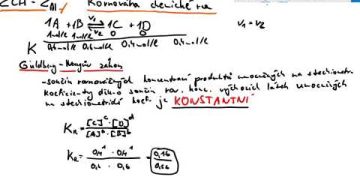 Rovnováha chemická
1A + 1B ⇌ 1C + 1D
v₁
v₂
v₁ = v₂
1mol/l 1mol/l 0 0
K 0,6mol/l 0,6mol/l 0,4mol/l 0,4mol/l
Guldberg-Waagův zákon
-součin rovnovážných koncentrací produktů umocněných na stechiometr.
koeficienty děleno součin rov. konc. výchozích látek umocněných
na stechiometrické koef. je KONSTANTNÍ
Kᵣ = [C]ᶜ·[D]ᵈ
[A]ᵃ·[B]ᵇ
Kᵣ = 0,4¹·0,4¹ = 0,16
0,6·0,6 0,36